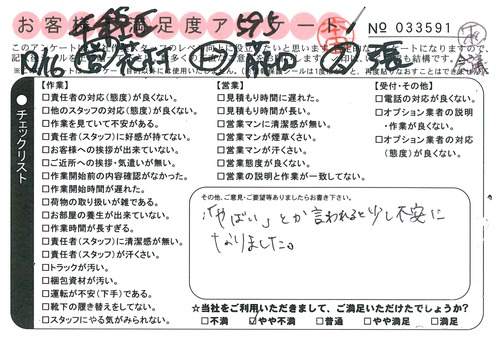 お客様満足度アンケート
№ 033591
会議
チェックリスト
【作業】
□責任者の対応(態度)が良くない。
□他のスタッフの対応(態度)が良くない。
□作業を見ていて不安がある。
□責任者(スタッフ)に好感が持てない。
□お客様への挨拶が出来ていない。
□ご近所への挨拶・気遣いが無い。
□作業開始前の内容確認がなかった。
□作業開始時間が遅れた。
□荷物の取り扱いが雑である。
□お部屋の養生が出来ていない。
□作業時間が長すぎる。
□責任者(スタッフ)に清潔感が無い。
□責任者(スタッフ)が汗くさい。
□トラックが汚い。
□梱包資材が汚い。
□運転が不安(下手)である。
□靴下の履き替えをしてない。
□スタッフにやる気がみられない。
【営業】
□見積もり時間に遅れた。
□見積もり時間が長い。
□営業マンに清潔感が無い。
□営業マンが煙草くさい。
□営業マンが汗くさい。
□営業態度が良くない。
□営業の説明と作業が一致してない。
【受付・その他】
□電話の対応が良くない。
□オプション業者の説明
・作業が良くない。
□オプション業者の対応
(態度)が良くない。
その他、ご意見・ご要望等ありましたらお書き下さい。
「やばい」とか言われると少し不安に
なりました。
☆当社をご利用いただきまして、ご満足いただけたでしょうか?
□不満 ☑やや不満 □普通 □やや満足 □満足